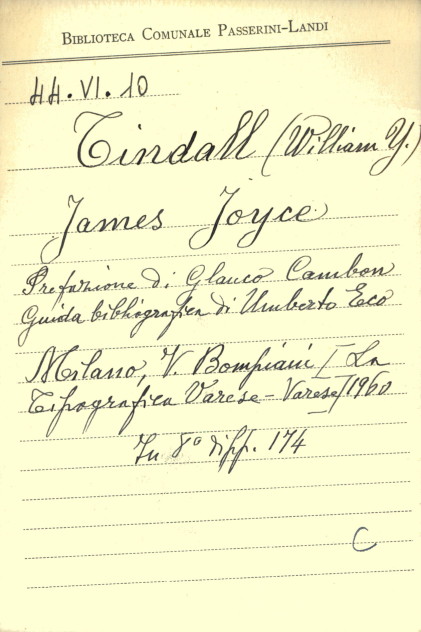 BIBLIOTECA COMUNALE PASSERINI-LANDI
44.VI.10
Tindall (William Y.)
James Joyce
Prefazione di Glauco Cambon
Guida bibliografica di Umberto Eco
Milano, V. Bompiani / La
Tipografica Varese - Varese / 1960
In 8º di pp. 174
C